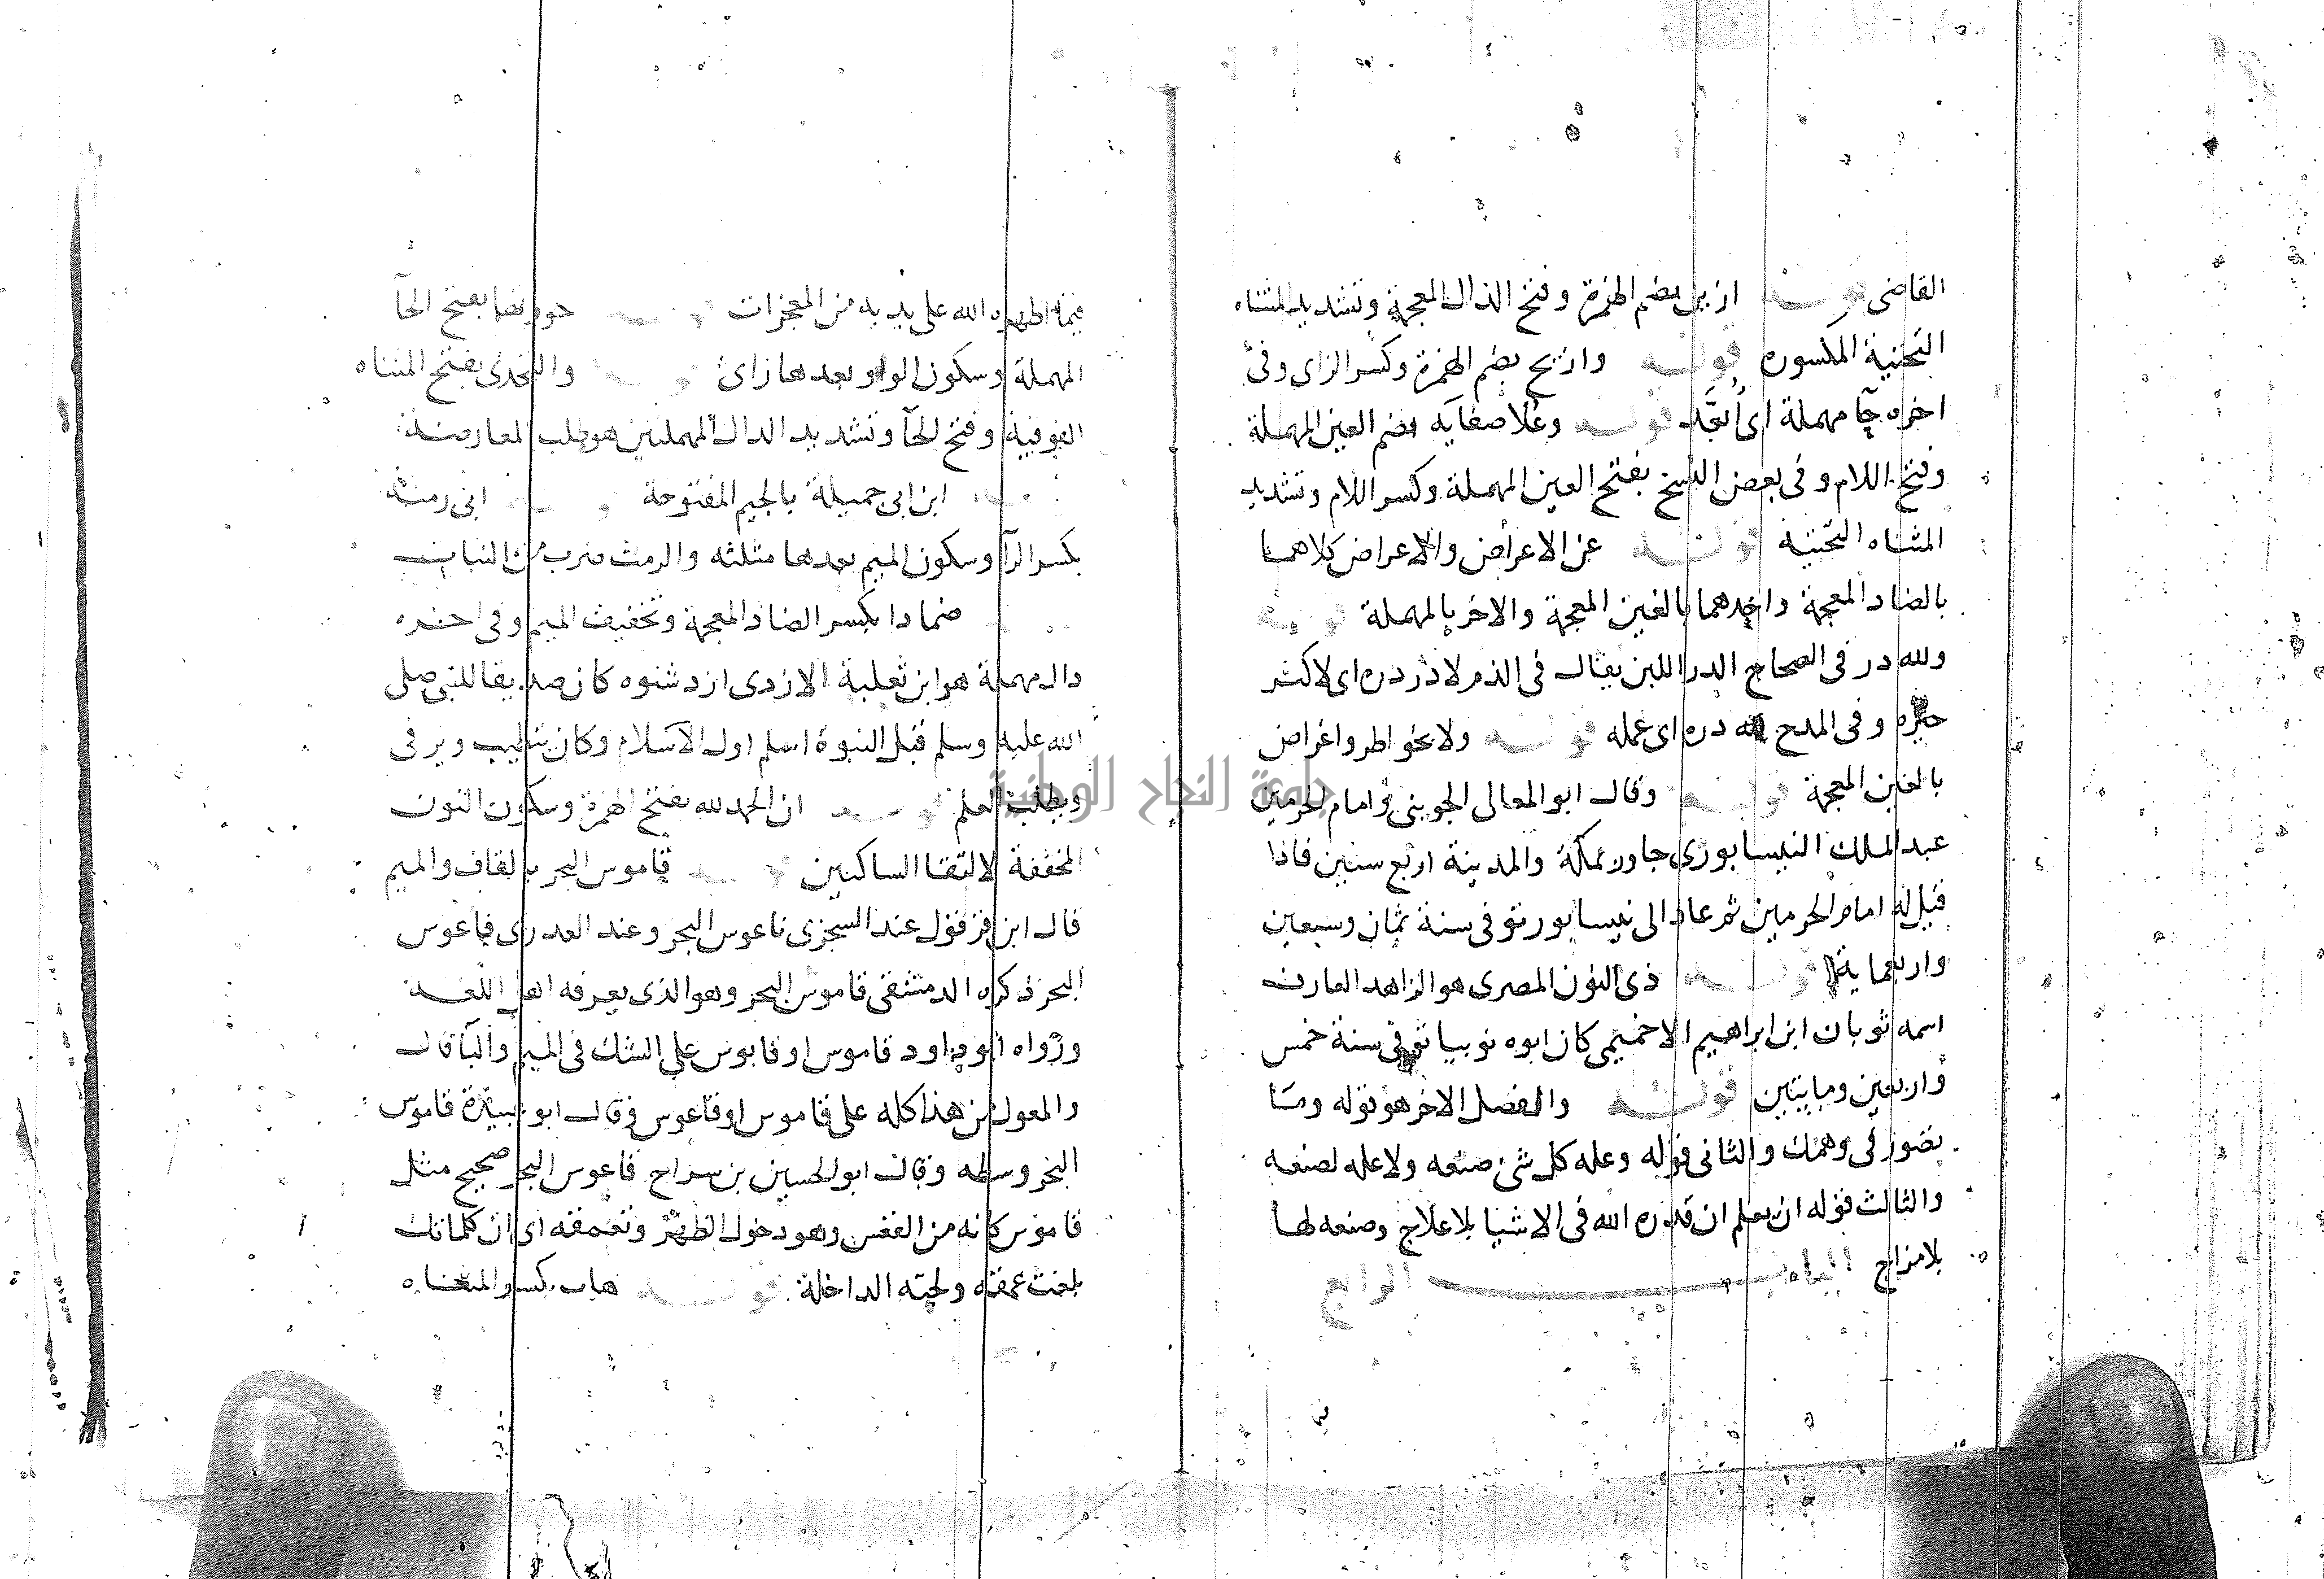 القاضى قوله ازين بضم الهمزة وفتح الذال المعجمة وتشديد المثناه
التحتية المكسوره قوله وازيح بضم الهمزة وكسر الزاى وفى
اخره حآ مهملة اى اُبعَد قوله وعُلا صفاته بضم العين المهملة
وفتح اللام وفى بعض النسخ بفتح العين المهملة وكسر اللام وتشديد
المثناه التحتية قوله عن الاغراض والاعراض كلاهما
بالضاد المعجمة واحدهما بالغين المعجمة والاخر بالمهملة قوله
ولله در فى الصحاح الدر اللبن يقال فى الذم لا در دره اى لا كثر
خيره وفى المدح لله دره اى عمله قوله ولا بخواطر واغراض
بالغين المعجمة قوله وقال ابو المعالى الجوينى هو امام الحرمين
عبد الملك النيسابورى جاور بمكة والمدينة اربع سنين فلذا
قيل له امام الحرمين ثم عاد الى نيسابور توفى سنة ثمان وسبعين
واربعماية قوله ذى النون المصرى هو الزاهد العارف
اسمه ثوبان ابن ابراهيم الاخميمى كان ابوه نوبيا توفى سنة خمس
واربعين ومايتين قوله والفصل الاخر هو قوله وما
تصور فى وهمك والثانى قوله وعلة كل شئ صنعه ولا علة لصنعه
والثالث قوله ان تعلم ان قدره الله فى الاشيا بلا علاج وصنعه لها
بلا مزاج الباب الرابع
فيما اظهره الله على يديه من المعجزات قوله حوزتها بفتح الحآ
المهملة وسكون الواو بعدها زاى قوله والتحدى بفتح المثناه
الفوقية وفتح الحآ وتشديد الدال المهملتين هو طلب المعارضة
قوله ابن ابى جميلة بالجيم المفتوحة قوله ابى رمثة
بكسر الرآ وسكون الميم بعدها مثلثه والرمث ضرب من النبات
ضمادا بكسر الضاد المعجمة وتخفيف الميم وفى اخره
دال مهملة هو ابن ثعلبة الازدى ازد شنوه كان صديقا للنبى صلى
الله عليه وسلم قبل النبوة اسلم اول الاسلام وكان يتطبب ويرقى
ويطلب العلم قوله ان الحمد لله بفتح الهمزة وسكون النون
المخففة لالتقا الساكنين قوله قاموس البحر بالقاف والميم
قال ابن قرقول عند السجزى ناعوس البحر وعند العدرى قاعوس
البحر ذكره الدمشقى قاموس البحر وهو الذى يعرفه اهل اللغة
ورواه ابو داود قاموس او قابوس على الشك فى الميم والبآ قال
والمعول من هذا كله على قاموس او قاعوس وقال ابو عبيدة قاموس
البحر وسطه وقال ابو الحسين بن سراج قاعوس البحر صحيح مثل
قاموس كانه من القعس وهو دخول الظهر وتعمقه اى ان كلماتك
بلغت عمقه ولجته الداخلة قوله هاب بكسر المثناه
جامعة النجاح الوطنية